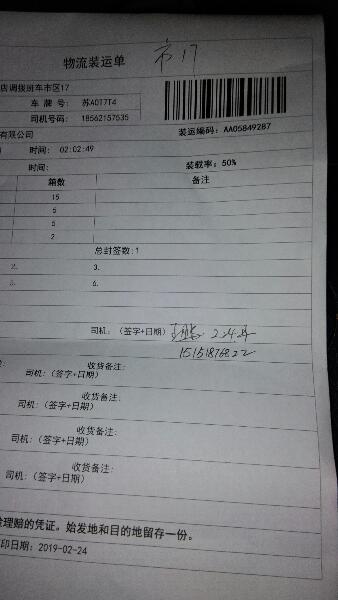 物流装运单 市17
店调拨班车市区17
车 牌 号: 苏A0T7T4
司机号码: 18562157535
装运编码: AA05849287
有限公司
时间: 02:02:49
时间: 装载率: 50%
箱数 备注
15
5
5
2
总封签数:1
2. 3.
5. 6.
司机: (签字+日期) 2.24
15151876822
收货备注:
司机:(签字+日期)
收货备注:
司机:(签字+日期)
收货备注:
司机:(签字+日期)
收货备注:
司机:(签字+日期)
理赔的凭证。始发地和目的地留存一份。
印日期: 2019-02-24